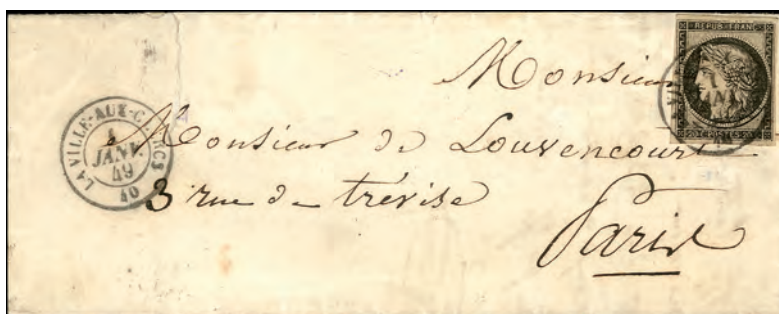 REPUB. FRANC.
20 C. POSTES 20
LA VILLE-AUX-CLERCS
JANV.
49
40
Monsieur
Monsieur de Louvencourt
3 rue de trévise
Paris